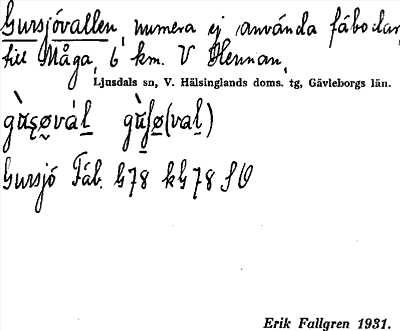 Gursjövallen, numera ej använda fäbodar
till Måga, 6 km. V Hennan,
Ljusdals sn, V. Hälsinglands doms. tg, Gävleborgs län.
Gursjö Fäb. G78 kG78 SO
Erik Fallgren 1931.